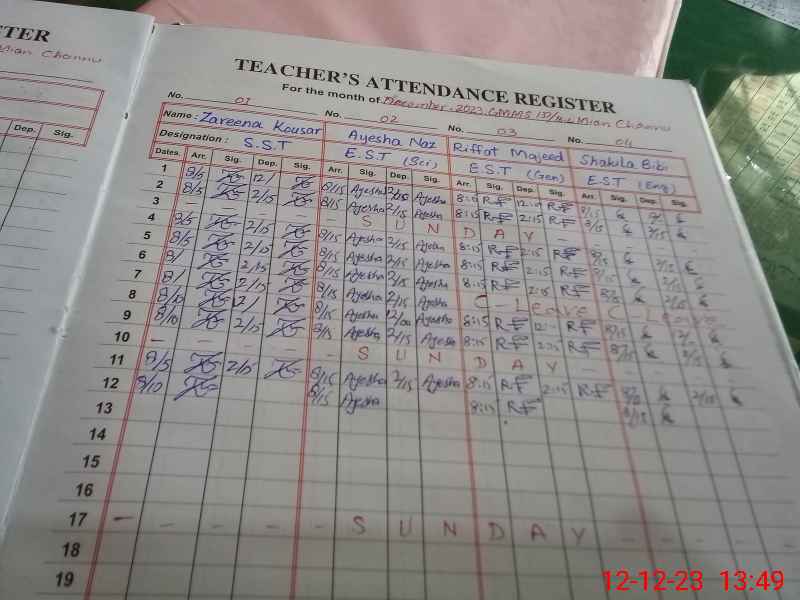 TER
Mian Channu
Dep. Sig.
TEACHER'S ATTENDANCE REGISTER
For the month of December. 2023. GMMS 157/15-L Mian Channu
No. 01 No. 02 No. 03 No. 04
Name: Zareena Kousar Ayesha Naz Riffat Majeed Shakila Bibi
Designation: S.S.T E.S.T (Sci) E.S.T (Gen) E.S.T (Eng)
Dates. Arr. Sig. Dep. Sig. Arr. Sig. Dep. Sig. Arr. Sig. Dep. Sig. Arr. Sig. Dep. Sig.
1 8/5 12/ 8/15 Ayesha Ayesha 8:15 RF RF
2 8/5 2/15 8/15 Ayesha 2/15 Ayesha 8:15 RF 2:15 RF
3 - - - - - S U N D A Y - -
4 8/5 2/15 8/15 Ayesha 2/15 8:15 RF 2:15 RF
5 8/5 2/15 8/15 Ayesha 2/15 Ayesha 8:15 RF 2:15 RF
6 8/ 2/15 8/15 Ayesha 2/15 Ayesha 8:15 RF 2:15 RF
7 8/ 2/15 8/15 Ayesha 2/15 Ayesha C - Leave C - Leave
8 8/10 12/ 8/15 Ayesha 12/00 Ayesha 8:15 RF RF
9 8/10 2/15 8/15 Ayesha 2/15 Ayesha 8:15 RF 2:15 RF
10 - - - - - S U N D A Y - -
11 8/5 2/15 8/15 Ayesha 2/15 Ayesha 8:15 RF 2:15 RF 2/15
12 8/10 8/15 Ayesha 8:15 RF 8/15
13
14
15
16
17 - - - - - S U N D A Y - -
18
19
12-12-23 13:49